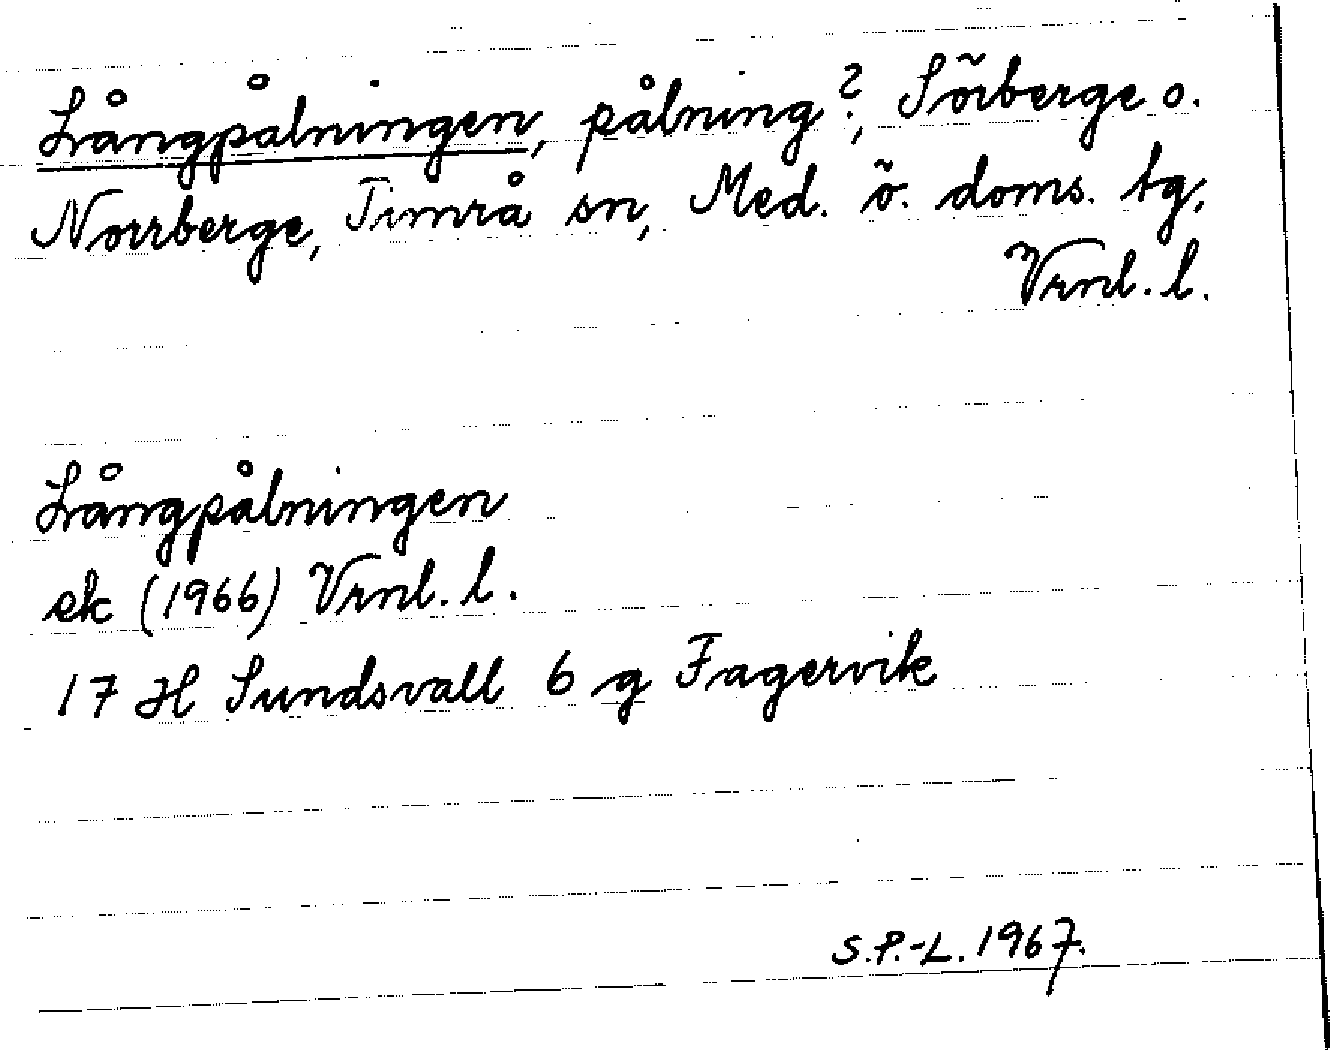 Långpålningen, pålning?, Sörberge o.
Norrberge, Timrå sn, Med. ö. doms. tg,
Vrnl. l.
Långpålningen
ek (1966) Vrnl. l.
17 H Sundsvall 6 g Fagervik
S.P.-L. 1967.